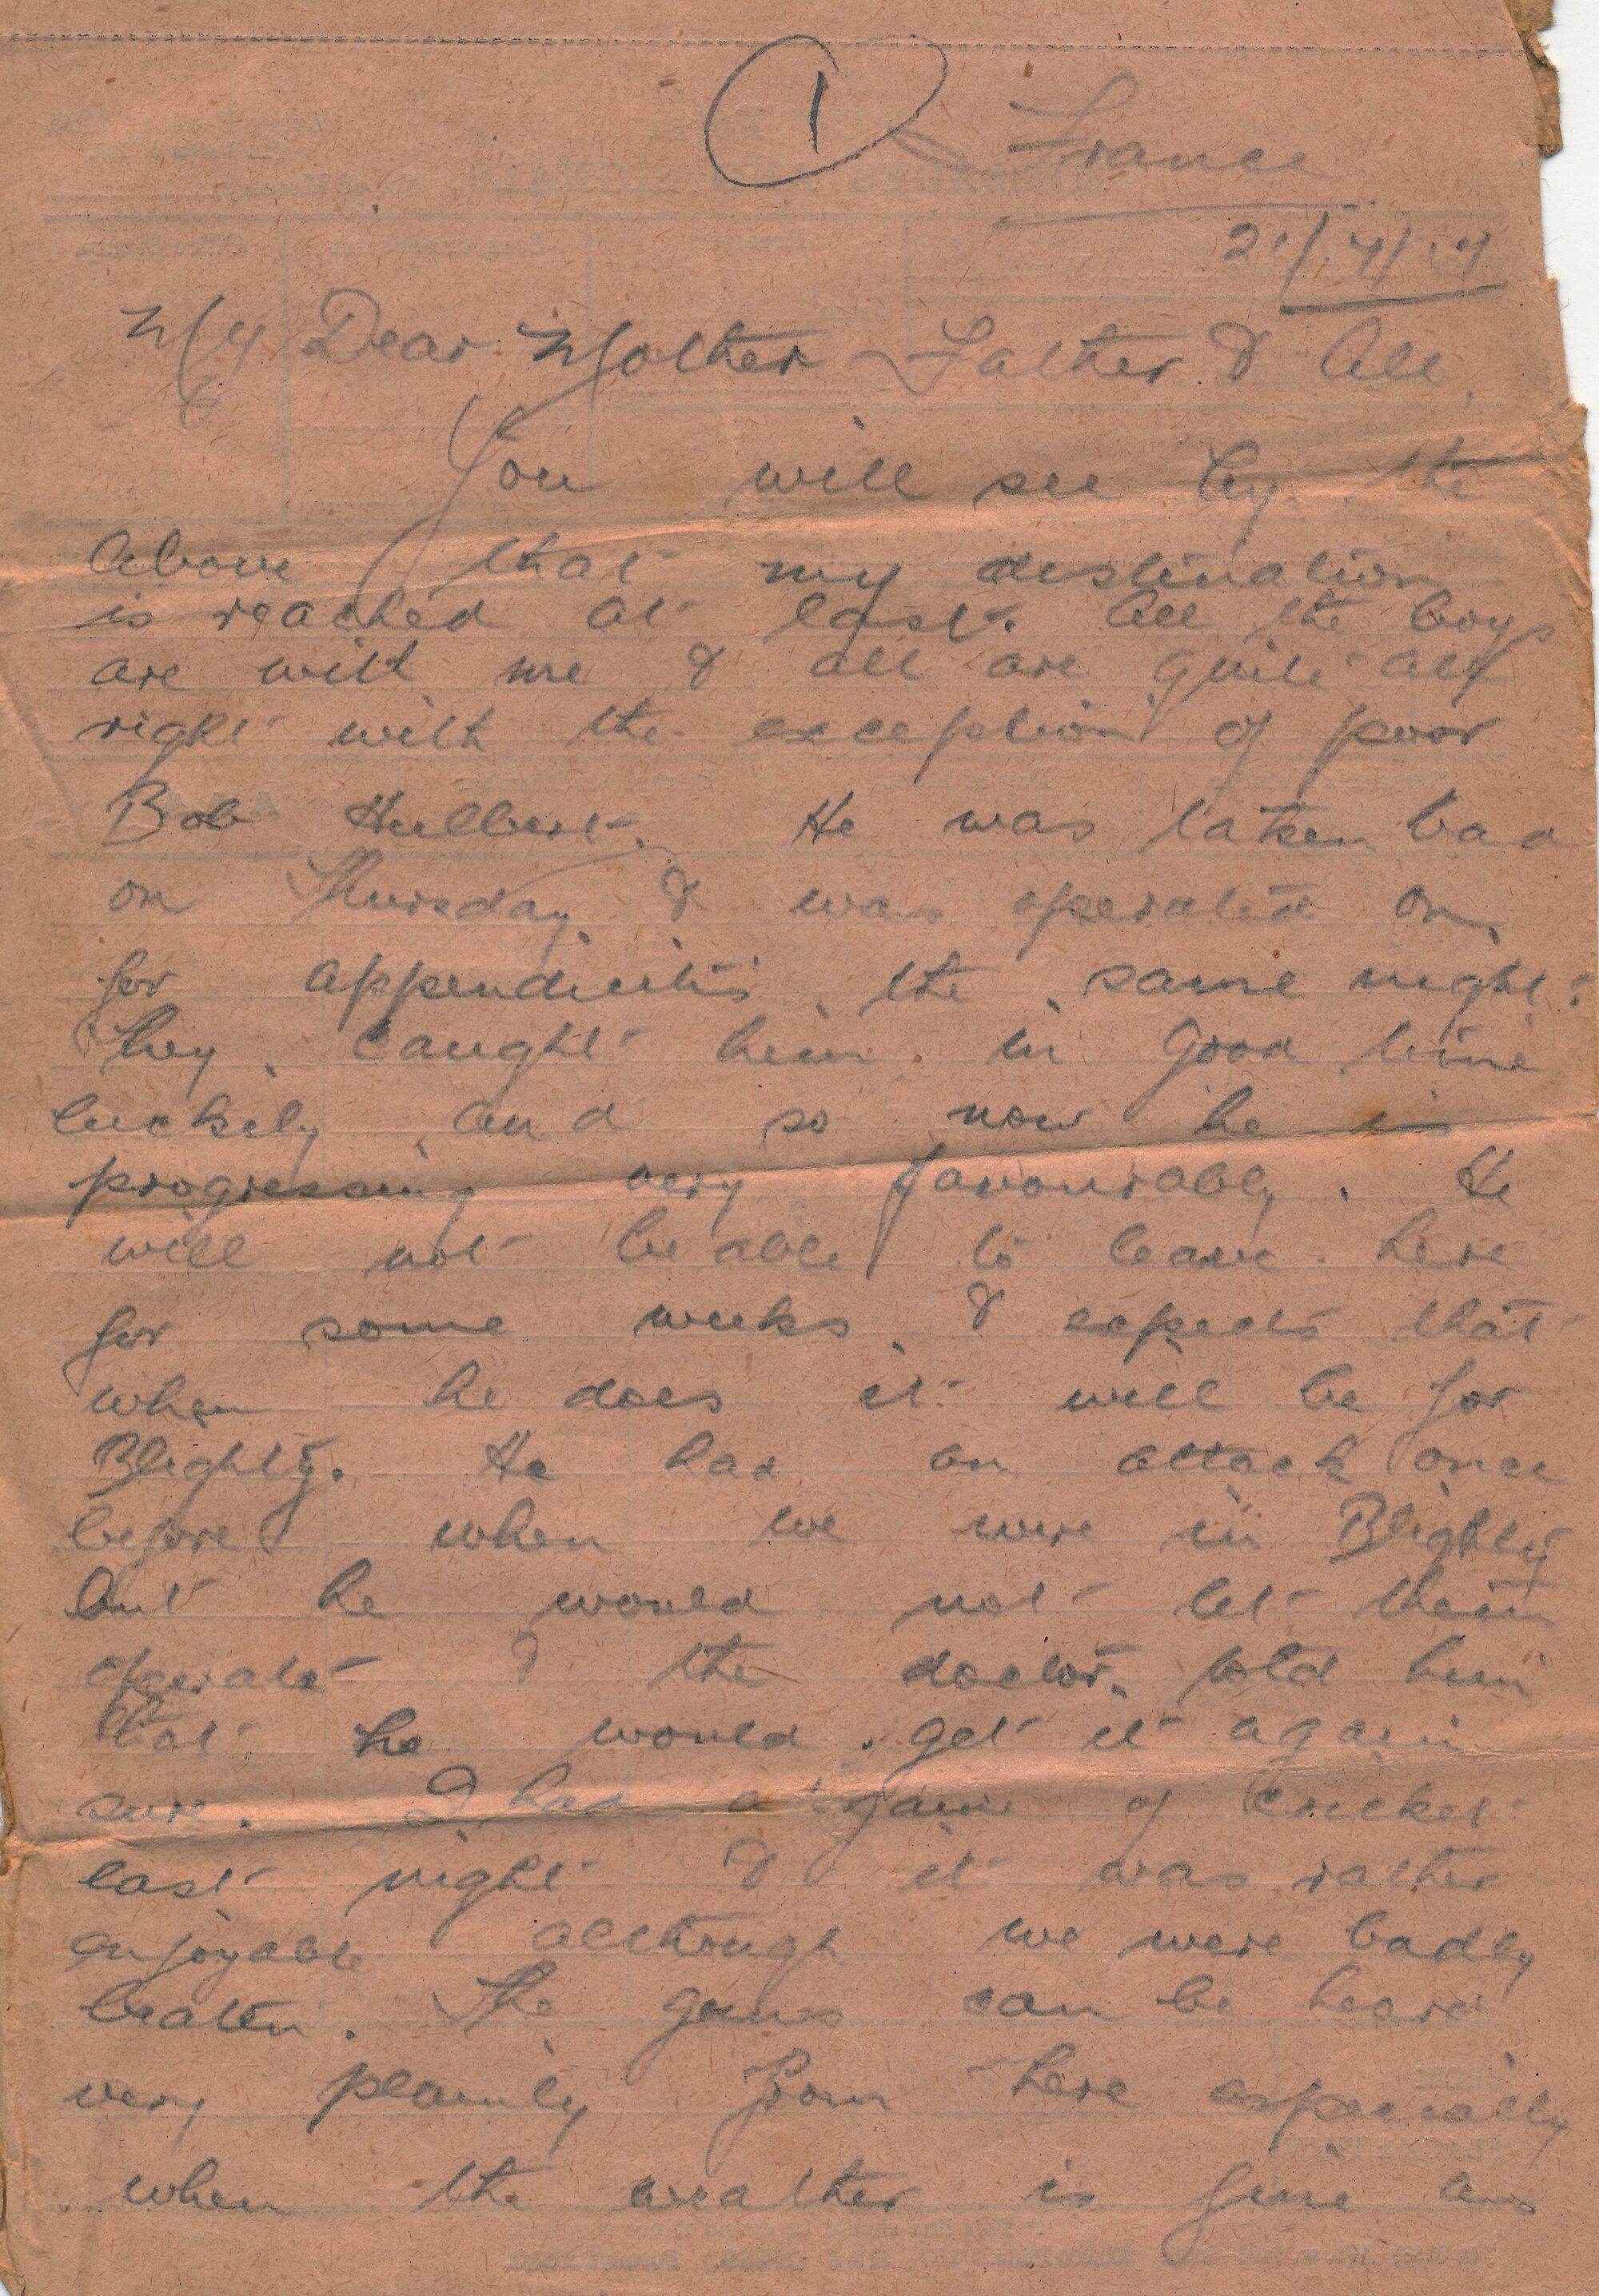 1
France
21/7/17
My Dear Mother Father & All
You will see by the
above that my destination
is reached at last. All the boys
are with me & all are quite all
right with the exception of poor
Bob Hulbert. He was taken bad
on Thursday & was operated on
for appendicitis the same night.
They caught him in good time
luckily and so now he is
progressing very favourably. He
will not be able to leave here
for some weeks & expects that
when he does it will be for
Blighty. He had an attack once
before when we were in Blighty
but he would not let them
operate & the doctor told him
that he would get it again
sure. I had a game of cricket
last night & it was rather
enjoyable although we were badly
beaten. The guns can be heard
very plainly from here especially
when the weather is fine and